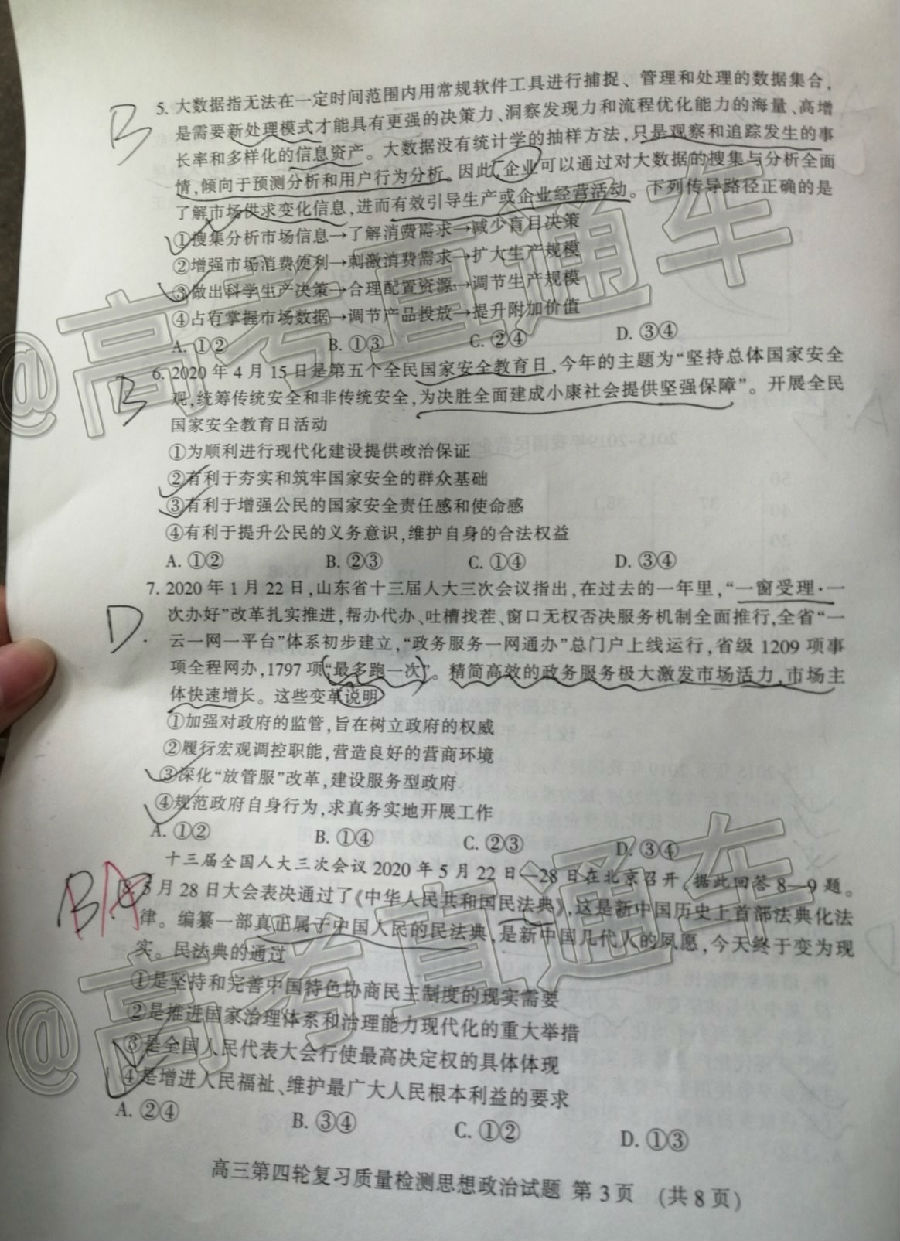 B
5. 大数据指无法在一定时间范围内用常规软件工具进行捕捉、管理和处理的数据集合，
是需要新处理模式才能具有更强的决策力、洞察发现力和流程优化能力的海量、高增
长率和多样化的信息资产。大数据没有统计学的抽样方法，只是观察和追踪发生的事
情，倾向于预测分析和用户行为分析。因此，企业可以通过对大数据的搜集与分析全面
了解市场供求变化信息，进而有效引导生产或企业经营活动。下列传导路径正确的是
①搜集分析市场信息→了解消费需求→减少盲目决策
②增强市场消费便利→刺激消费需求→扩大生产规模
③做出科学生产决策→合理配置资源→调节生产规模
④占有掌握市场数据→调节产品投放→提升附加价值
A. ①② B. ①③ C. ②④ D. ③④
@高考直通车
B
6. 2020 年 4 月 15 日是第五个全民国家安全教育日，今年的主题为“坚持总体国家安全
观，统筹传统安全和非传统安全，为决胜全面建成小康社会提供坚强保障”。开展全民
国家安全教育日活动
①为顺利进行现代化建设提供政治保证
②有利于夯实和筑牢国家安全的群众基础
③有利于增强公民的国家安全责任感和使命感
④有利于提升公民的义务意识，维护自身的合法权益
A. ①② B. ②③ C. ①④ D. ③④
D.
7. 2020 年 1 月 22 日，山东省十三届人大三次会议指出，在过去的一年里，“一窗受理·一
次办好”改革扎实推进，帮办代办、吐槽找茬、窗口无权否决服务机制全面推行，全省“一
云一网一平台”体系初步建立，“政务服务一网通办”总门户上线运行，省级 1209 项事
项全程网办，1797 项“最多跑一次”。精简高效的政务服务极大激发市场活力，市场主
体快速增长。这些变革说明
①加强对政府的监管，旨在树立政府的权威
②履行宏观调控职能，营造良好的营商环境
③深化“放管服”改革，建设服务型政府
④规范政府自身行为，求真务实地开展工作
A. ①② B. ①④ C. ②③ D. ③④
十三届全国人大三次会议 2020 年 5 月 22 日—28 日在北京召开，据此回答 8—9 题。
B A
8. 5 月 28 日大会表决通过了《中华人民共和国民法典》，这是新中国历史上首部法典化法
律。编纂一部真正属于中国人民的民法典，是新中国几代人的夙愿，今天终于变为现
实。民法典的通过
①是坚持和完善中国特色协商民主制度的现实需要
②是推进国家治理体系和治理能力现代化的重大举措
③是全国人民代表大会行使最高决定权的具体体现
④是增进人民福祉、维护最广大人民根本利益的要求
A. ②④ B. ③④ C. ①② D. ①③
@高考直通车
高三第四轮复习质量检测思想政治试题 第 3 页 (共 8 页)